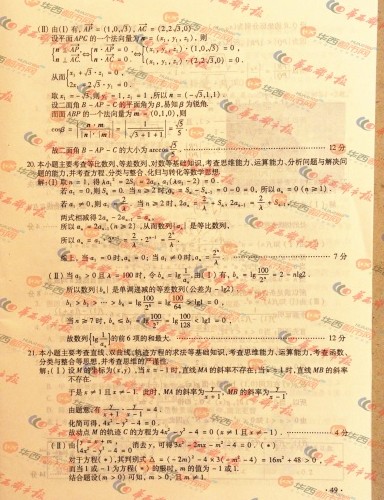 (Ⅱ) 由(Ⅰ)有, AP=(1,0,√3), AC=(2,2√3,0)
设平面APC的一个法向量为n=(x₁,y₁,z₁), 则
从而
取x₁=-√3, 则y₁=1, z₁=1, 所以n=(-√3,1,1)
设二面角B-AP-C的平面角为β, 易知β为锐角
而面ABP的一个法向量为m=(0,1,0), 则
故二面角B-AP-C的大小为 12分
20. 本小题主要考查等比数列,等差数列,对数等基础知识,考查思维能力、运算能力、分析问题与解决问
题的能力,并考查方程、分类与整合、化归与转化等数学思想.
解:(Ⅰ)取n=1, 得λa₁²=2S₁=2a₁, a₁(λa₁-2)=0.
若a₁=0, 则Sₙ=0. 当n≥2时, aₙ=Sₙ-Sₙ₋₁=0-0=0, 所以aₙ=0(n≥1).
若a₁≠0, 则a₁=2/λ. 当n≥2时, 2aₙ=2/λ+Sₙ, 2aₙ₋₁=2/λ+Sₙ₋₁,
两式相减得2aₙ-2aₙ₋₁=aₙ,
所以aₙ=2aₙ₋₁(n≥2), 从而数列{aₙ}是等比数列,
所以aₙ=a₁·2ⁿ⁻¹=2/λ·2ⁿ⁻¹=2ⁿ/λ.
综上, 当a₁=0时, aₙ=0; 当a₁≠0时, aₙ=2ⁿ/λ. 7分
(Ⅱ)当a₁>0且λ=100时, 令bₙ=lg 1/aₙ, 由(Ⅰ)有, bₙ=lg 100/2ⁿ=2-nlg2.
所以数列{bₙ}是单调递减的等差数列(公差为-lg2).
b₁>b₂>…>b₆=lg 100/2⁶=lg 100/64>lg1=0,
当n≥7时, bₙ≤b₇=lg 100/2⁷=lg 100/128<lg1=0.
故数列{lg 1/aₙ}的前6项的和最大. 12分
21. 本小题主要考查直线、双曲线、轨迹方程的求法等基础知识,考查思维能力、运算能力,考查函数、
分类与整合等思想,并考查思维的严谨性.
解:(Ⅰ)设M的坐标为(x,y), 当x=-1时, 直线MA的斜率不存在; 当x=1时, 直线MB的斜率
不存在.
于是x≠1且x≠-1. 此时, MA的斜率为y/(x+1), MB的斜率为y/(x-1).
由题意, 有 y/(x+1)·y/(x-1)=4,
化简可得, 4x²-y²-4=0.
故动点M的轨迹C的方程为4x²-y²-4=0(x≠1且x≠-1). 4分
(Ⅱ)由 消去y, 可得3x²-2mx-m²-4=0. (*)
对于方程(*), 其判别式Δ=(-2m)²-4×3(-m²-4)=16m²+48>0,
而当1或-1为方程(*)的根时, m的值为-1或1.
结合题设(m>0)可知, m>0, 且m≠1.
·49·